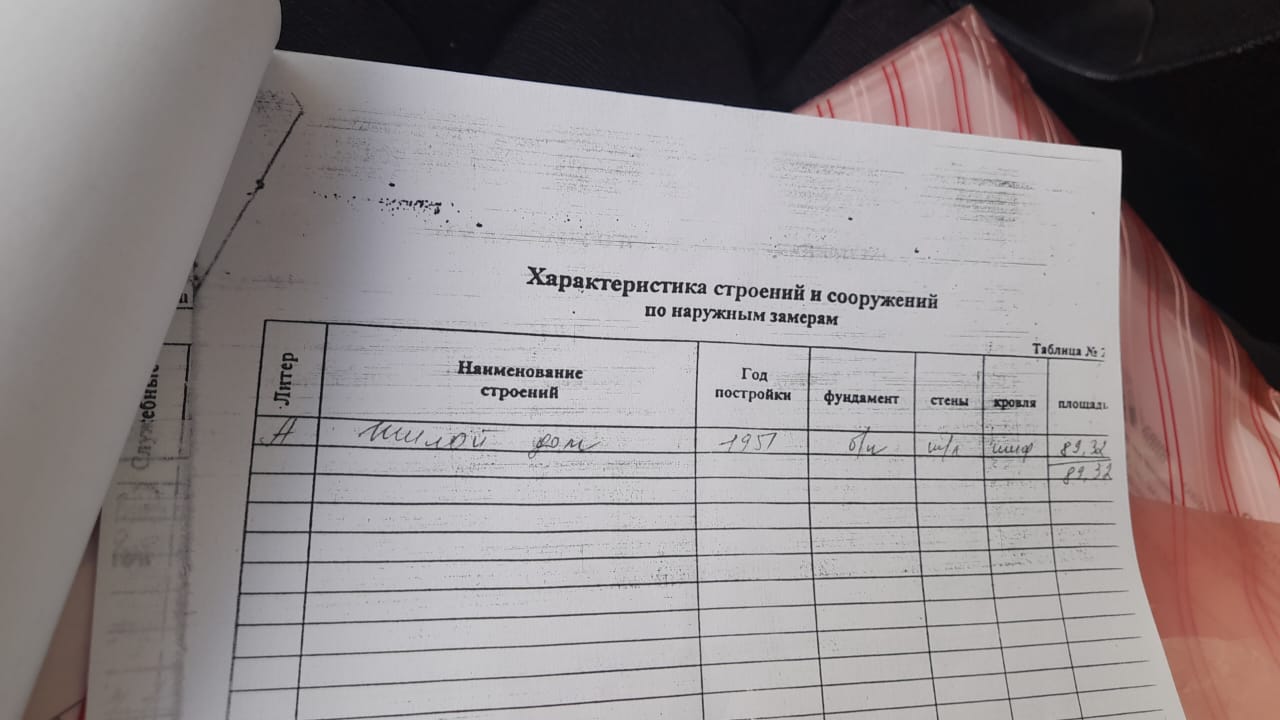 Характеристика строений и сооружений
по наружным замерам
Таблица № 2
Литер
Наименование
строений
Год
постройки
фундамент
стены
кровля
площадь
А Жилой дом 1951 б/н ш/л шиф 89,32
89,32
Служебные